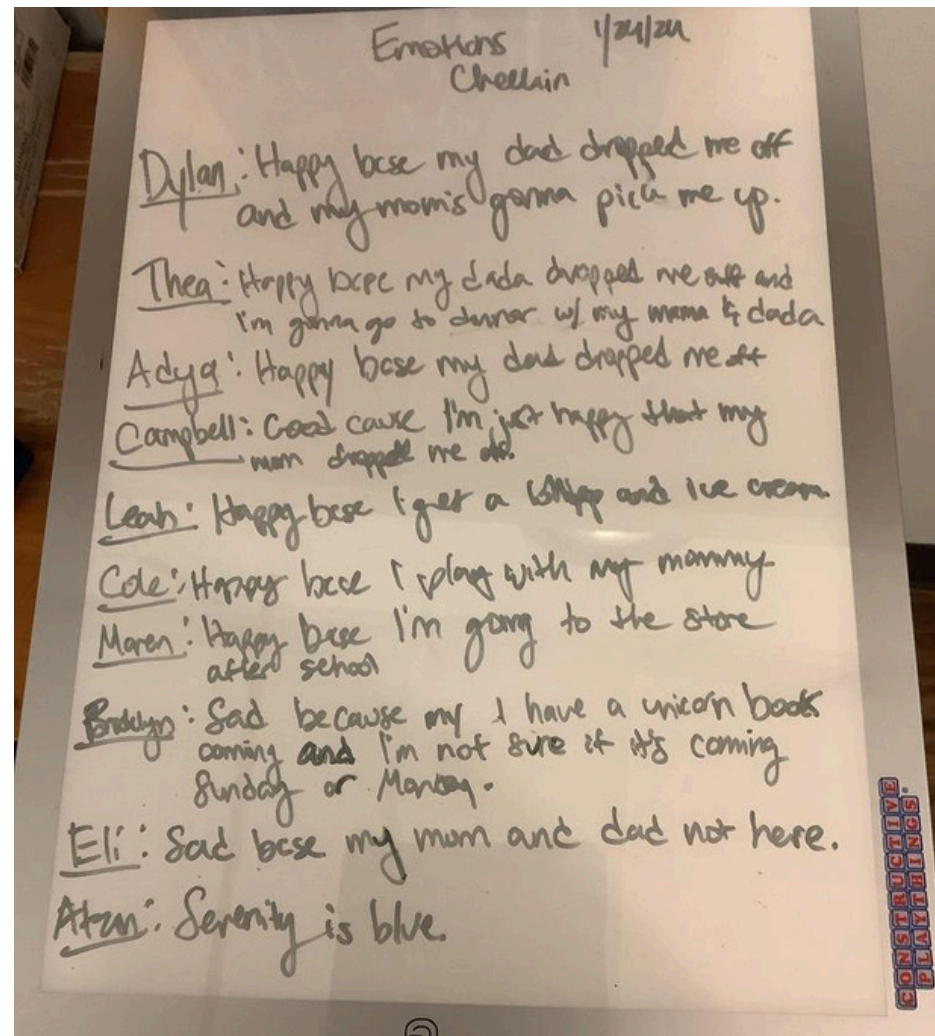 Emotions 1/24/24
Checkin
Dylan: Happy bcse my dad dropped me off
and my mom's gonna pick me up.
Thea: Happy bcse my dada dropped me off and
I'm gonna go to dinner w/ my mama & dada
Adya: Happy bcse my dad dropped me off
Campbell: Good cause I'm just happy that my
mom dropped me off.
Leah: Happy bcse I get a and ice cream
Cole: Happy bcse I play with my mommy
Maren: Happy bcse I'm going to the store
after school
Brooklyn: Sad because my I have a unicorn book
coming and I'm not sure if it's coming
Sunday or Monday.
Eli: Sad bcse my mom and dad not here.
Serenity is blue.
CONSTRUCTIVE
PLAYTHINGS